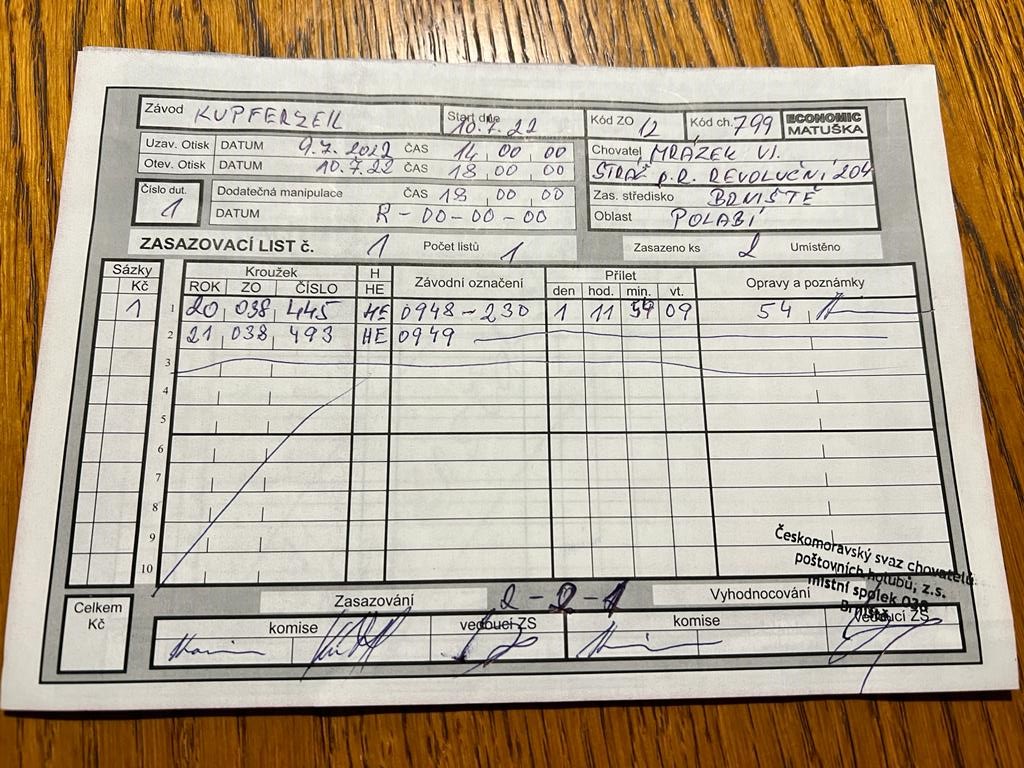 Závod KUPFERZELL Start dne 10.7.22 Kód ZO 12 Kód ch. 799 ECONOMIC MATUŠKA
Uzav. Otisk DATUM 9.7.2022 ČAS 14 00 00 Chovatel MRÁZEK Vl.
Otev. Otisk DATUM 10.7.22 ČAS 18 00 00 STRÁŽ P.R. REVOLUČNÍ 204
Číslo dut. 1 Dodatečná manipulace ČAS 18 00 00 Zas. středisko BRNIŠTĚ
DATUM R-00-00-00 Oblast POLABÍ
ZASAZOVACÍ LIST č. 1 Počet listů 1 Zasazeno ks 2 Umístěno
Sázky Kroužek H Závodní označení Přílet Opravy a poznámky
Kč ROK ZO ČÍSLO HE den hod. min. vt.
1 1 20 038 445 HE 0948-230 1 11 54 09 54
2 21 038 493 HE 0949
3
4
5
6
7
8
9
10
Českomoravský svaz chovatelů
poštovních holubů, z.s.
místní spolek 038
Brniště
Celkem Kč Zasazování 2-2-1 Vyhodnocování
komise vedoucí ZS komise vedoucí ZS